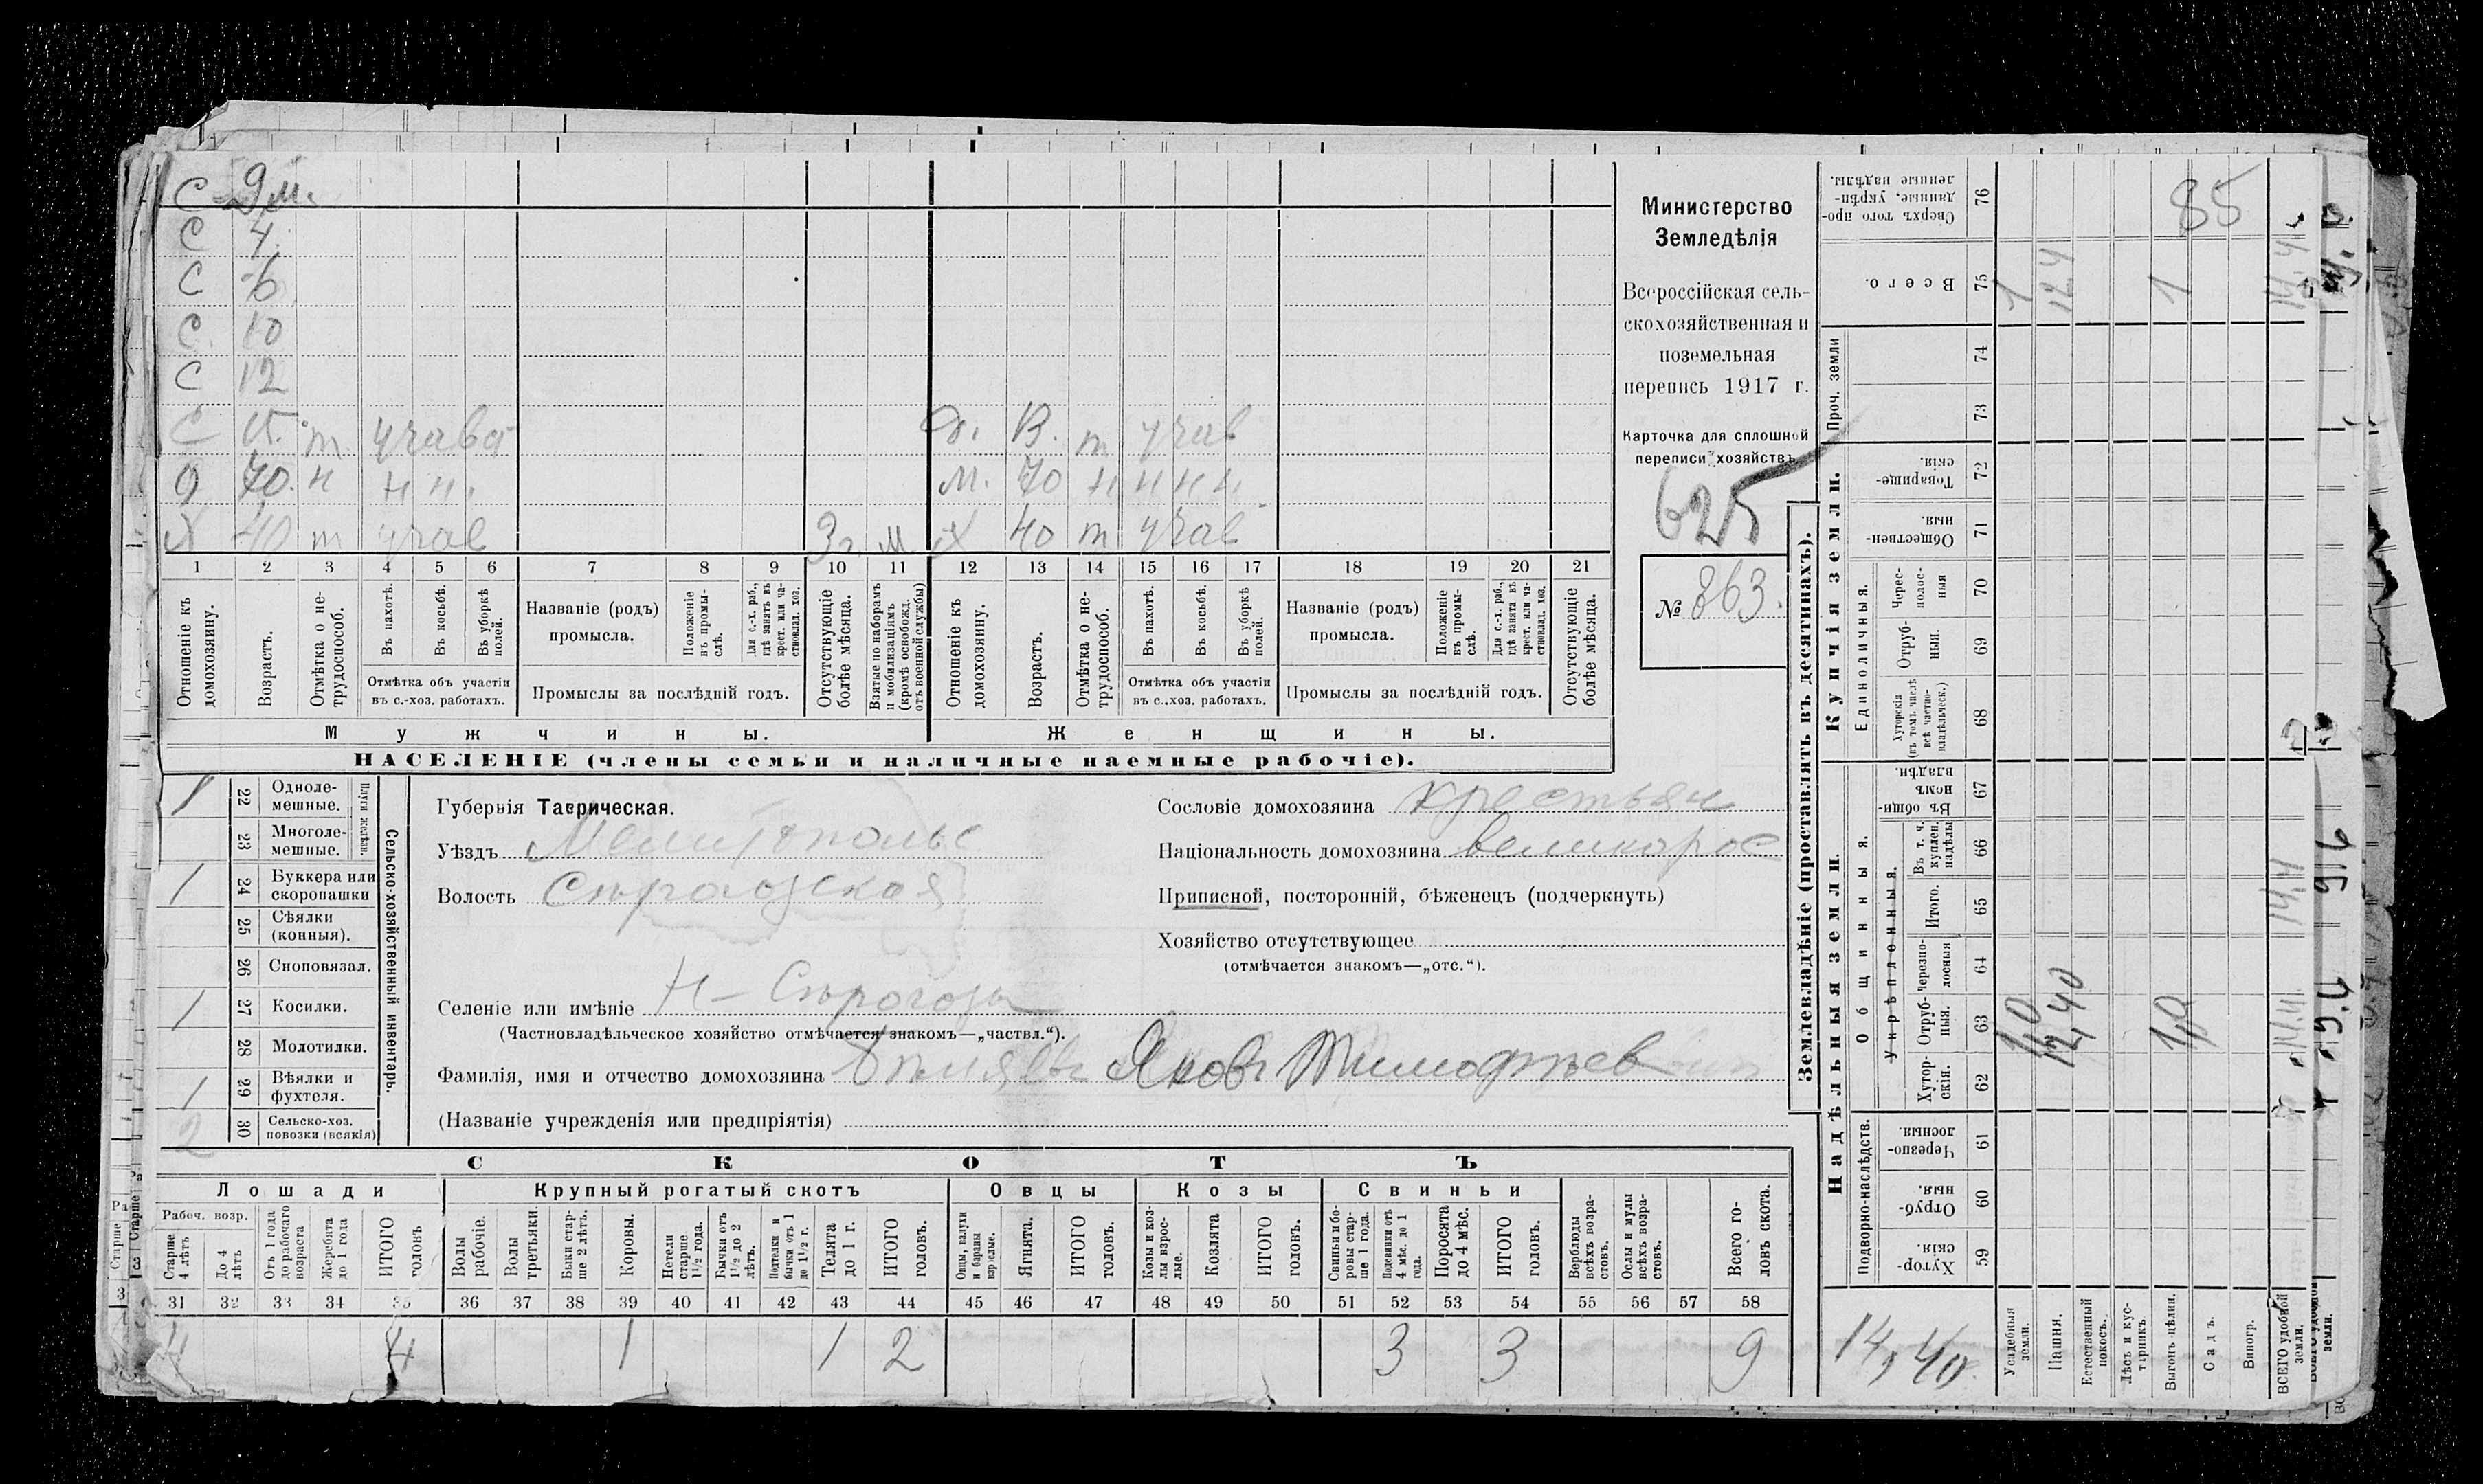 С 9 м.
С 4.
С 6
С. 10
С 12
С 15. т учав Д. 13. т учав
О 70. н н н. М. 70 н н н н
Х 40 т учав 3 г. м Х 40 т учав
1 2 3 4 5 6 7 8 9 10 11 12 13 14 15 16 17 18 19 20 21
Отношеніе къ домохозяину.
Возрастъ.
Отмѣтка о не-трудоспособ.
Въ пахотѣ.
Въ косьбѣ.
Въ уборкѣ полей.
Отмѣтка объ участіи въ с.-хоз. работахъ.
Названіе (родъ) промысла.
Положеніе въ промы-слѣ.
Для с.-х. раб., гдѣ занятъ въ крест. или ча-стновлад. хоз.
Промыслы за послѣдній годъ.
Отсутствующіе болѣе мѣсяца.
Взятые по наборамъ и мобилизаціямъ (кромѣ освобожд. отъ военной службы)
Отношеніе къ домохозяину.
Возрастъ.
Отмѣтка о не-трудоспособ.
Въ пахотѣ.
Въ косьбѣ.
Въ уборкѣ полей.
Отмѣтка объ участіи въ с.-хоз. работахъ.
Названіе (родъ) промысла.
Положеніе въ промы-слѣ.
Для с.-х. раб., гдѣ занята въ крест. или ча-стновлад. хоз.
Промыслы за послѣдній годъ.
Отсутствующіе болѣе мѣсяца.
Мужчины. Женщины.
НАСЕЛЕНІЕ (члены семьи и наличные наемные рабочіе).
Министерство
Земледѣлія
Всероссійская сель-
скохозяйственная и
поземельная
перепись 1917 г.
Карточка для сплошной
переписи хозяйствъ
625
№ 863.
Сельско-хозяйственный инвентарь.
Плуги желѣзн.
1 22 Одноле-мешные.
23 Многоле-мешные.
1 24 Буккера или скоропашки
25 Сѣялки (конныя).
26 Сноповязал.
1 27 Косилки.
28 Молотилки.
1 29 Вѣялки и фухтеля.
2 30 Сельско-хоз. повозки (всякія)
Губернія Таврическая.
Уѣздъ Мелитопольс
Волость Сѣрогозская
Селеніе или имѣніе Н-Сѣрогозы
(Частновладѣльческое хозяйство отмѣчается знакомъ—„частвл.“).
Фамилія, имя и отчество домохозяина Яковъ Тимофѣев
(Названіе учрежденія или предпріятія)
Сословіе домохозяина крестьян
Національность домохозяина великорос
Приписной, посторонній, бѣженецъ (подчеркнуть)
Хозяйство отсутствующее
(отмѣчается знакомъ—„отс.“).
СКОТЪ
Лошади Крупный рогатый скотъ Овцы Козы Свиньи
Рабоч. возр.
Старше 4 лѣтъ
До 4 лѣтъ
Отъ 1 года до рабочаго возраста
Жеребята до 1 года
ИТОГО головъ
Волы рабочіе.
Волы третьяки.
Быки стар-ше 2 лѣтъ.
Коровы.
Нетели старше 1 1/2 года.
Бычки отъ 1 1/2 до 2 лѣтъ.
Подтелки и бычки отъ 1 до 1 1/2 г.
Телята до 1 г.
ИТОГО головъ.
Овцы, валухи и бараны взрослые.
Ягнята.
ИТОГО головъ.
Козы и коз-лы взрос-лые.
Козлята
ИТОГО головъ.
Свиньи и бо-ровы стар-ше 1 года.
Подсвинки отъ 4 мѣс. до 1 года.
Поросята до 4 мѣс.
ИТОГО головъ.
Верблюды всѣхъ возра-стовъ.
Ослы и мулы всѣхъ возра-стовъ.
Всего го-ловъ скота.
31 32 33 34 35 36 37 38 39 40 41 42 43 44 45 46 47 48 49 50 51 52 53 54 55 56 57 58
4 4 1 1 2 3 3 9
Землевладѣніе (проставлять въ десятинахъ).
Купчія земли.
Проч. земли
Единоличныя.
Надѣльныя земли.
Общинныя.
Укрѣпленныя.
Подворно-наслѣдств.
Сверхъ того про-данные, укрѣп-ленные надѣлы. 76
Всего. 75 1 12.4 1 14.4
74
73
Товарище-скія. 72
Обществен-ныя. 71
Черес-полос-ныя 70
Отруб-ныя. 69
Хуторскія (въ томъ числѣ всѣ частно-владѣльческ.) 68
Въ общи-номъ владѣн. 67
Въ т. ч. куплен. надѣлы 66
Итого. 65
Черезпо-лосныя 64
Отруб-ныя. 63 1,0 12,40 1,0
Хутор-скія. 62
Черезпо-лосныя. 61
Отруб-ныя. 60
Хутор-скія. 59
85
14,40
Усадебныя земли.
Пашня.
Естественный покосъ.
Лѣсъ и кус-тарникъ
Выгонъ-цѣлин.
Садъ.
Виногр.
ВСЕГО удобной земли.